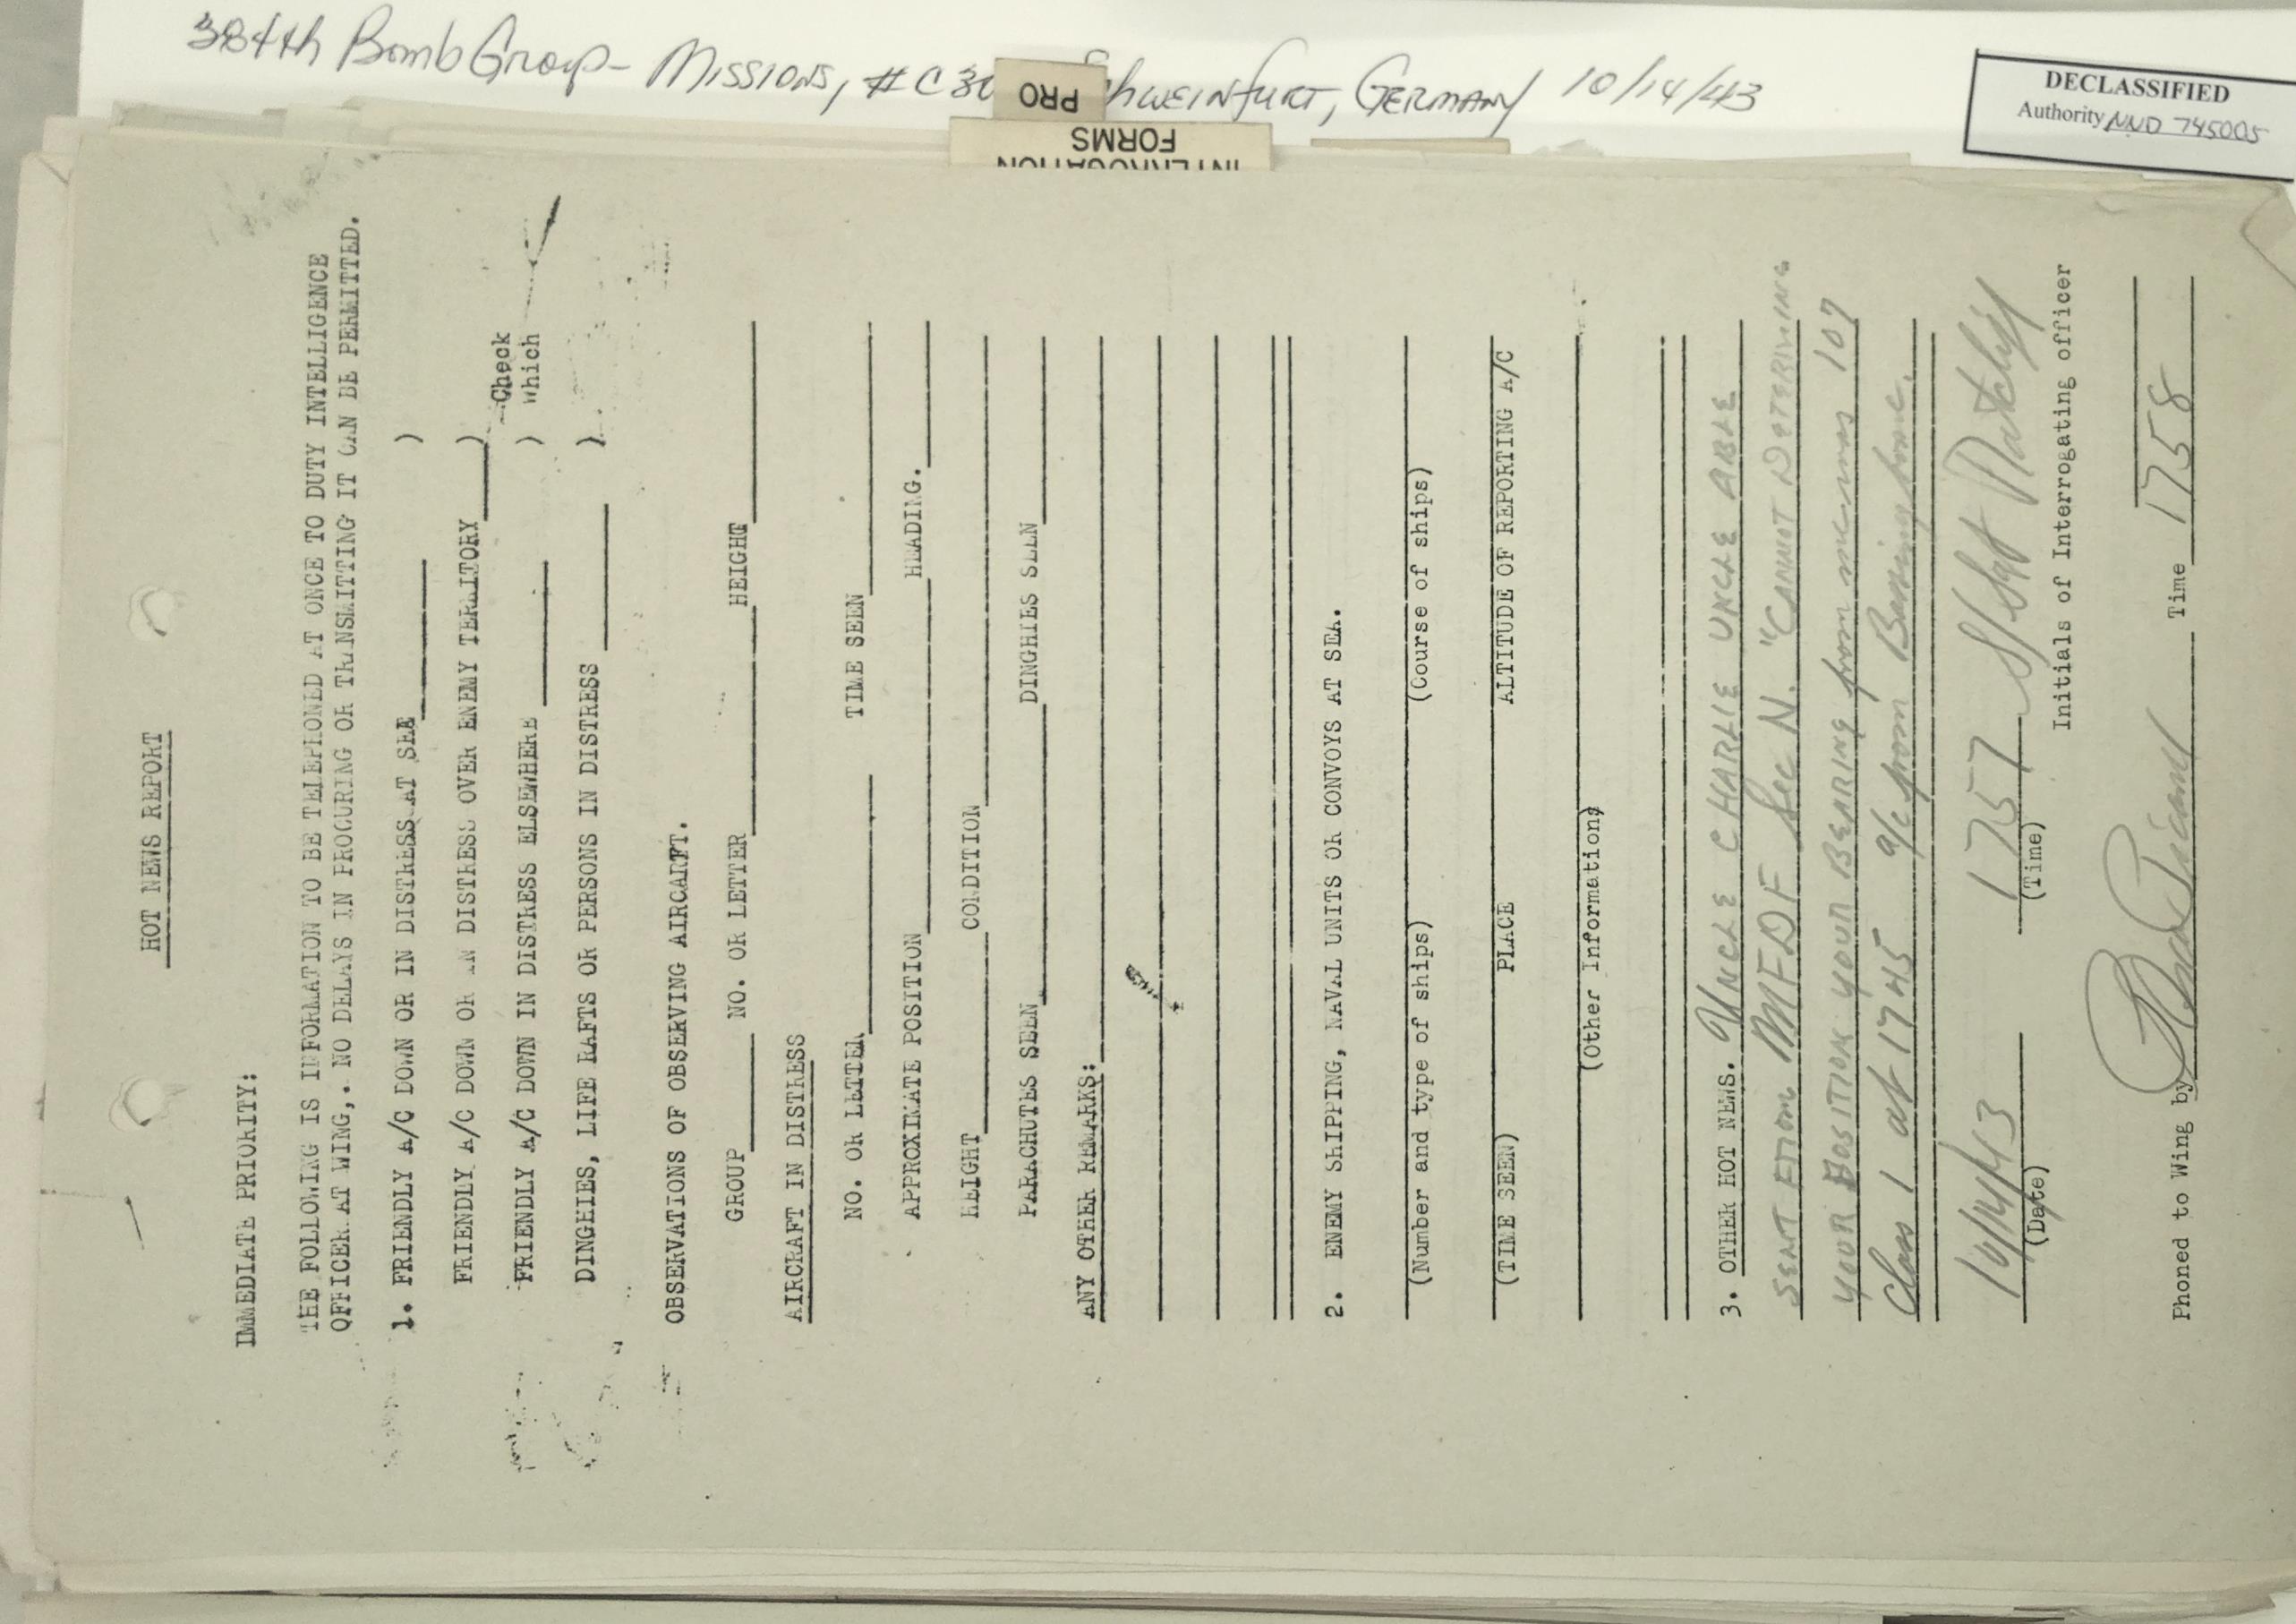 384th Bomb Group - Missions, #C30 Schweinfurt, Germany 10/14/43
DECLASSIFIED
Authority NND 745005
PRO
INTERROGATION
FORMS
HOT NEWS REPORT
IMMEDIATE PRIORITY:
THE FOLLOWING IS INFORMATION TO BE TELEPHONED AT ONCE TO DUTY INTELLIGENCE
OFFICER AT WING,. NO DELAYS IN PROCURING OR TRANSMITTING IT CAN BE PERMITTED.
1. FRIENDLY A/C DOWN OR IN DISTRESS AT SEA )
FRIENDLY A/C DOWN OR IN DISTRESS OVER ENEMY TERRITORY ) Check
FRIENDLY A/C DOWN IN DISTRESS ELSEWHERE ) which
DINGHIES, LIFE RAFTS OR PERSONS IN DISTRESS )
OBSERVATIONS OF OBSERVING AIRCARFT.
GROUP NO. OR LETTER HEIGHT
AIRCRAFT IN DISTRESS
NO. OR LETTER TIME SEEN
APPROXIMATE POSITION HEADING.
HEIGHT CONDITION
PARACHUTES SEEN DINGHIES SEEN
ANY OTHER REMARKS:
2. ENEMY SHIPPING, NAVAL UNITS OR CONVOYS AT SEA.
(Number and type of ships) (Course of ships)
(TIME SEEN) PLACE ALTITUDE OF REPORTING A/C
(Other Information)
3. OTHER HOT NEWS. UNCLE CHARLIE UNCLE ABLE
SENT FROM MFDF Sec N. "CANNOT DETERMINE
YOUR POSITION YOUR BEARING from me was 107
Class 1 at 1745 a/c from Bassingbourne.
10/14/43 1757 S/Sgt
(Date) (Time) Initials of Interrogating officer
Phoned to Wing by Time 1758